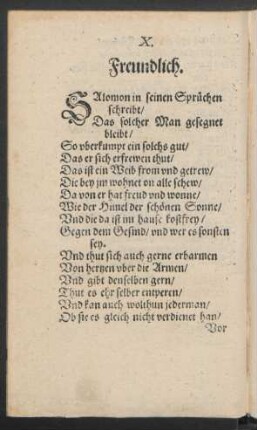 X.
Freundlich.
SAlomon in seinen Sprüchen
schreibt/
Das solcher Man gesegnet
bleibt/
So vberkumpt ein solchs gut/
Das er sich erfrewen thut/
Das ist ein Weib from vnd getrew/
Die bey jm wohnet on alle schew/
Da von er hat freud vnd wonne/
Wie der Himel der schönen Sonne/
Vnd die da ist im hause kostfrey/
Gegen dem Gesind/ vnd wer es sonsten
sey.
Vnd thut sich auch gerne erbarmen
Von hertzen vber die Armen/
Vnd gibt denselben gern/
Thut es ehr selber entperen/
Vnd kan auch wolthun jederman/
Ob sie es gleich nicht verdienet han/
Vor